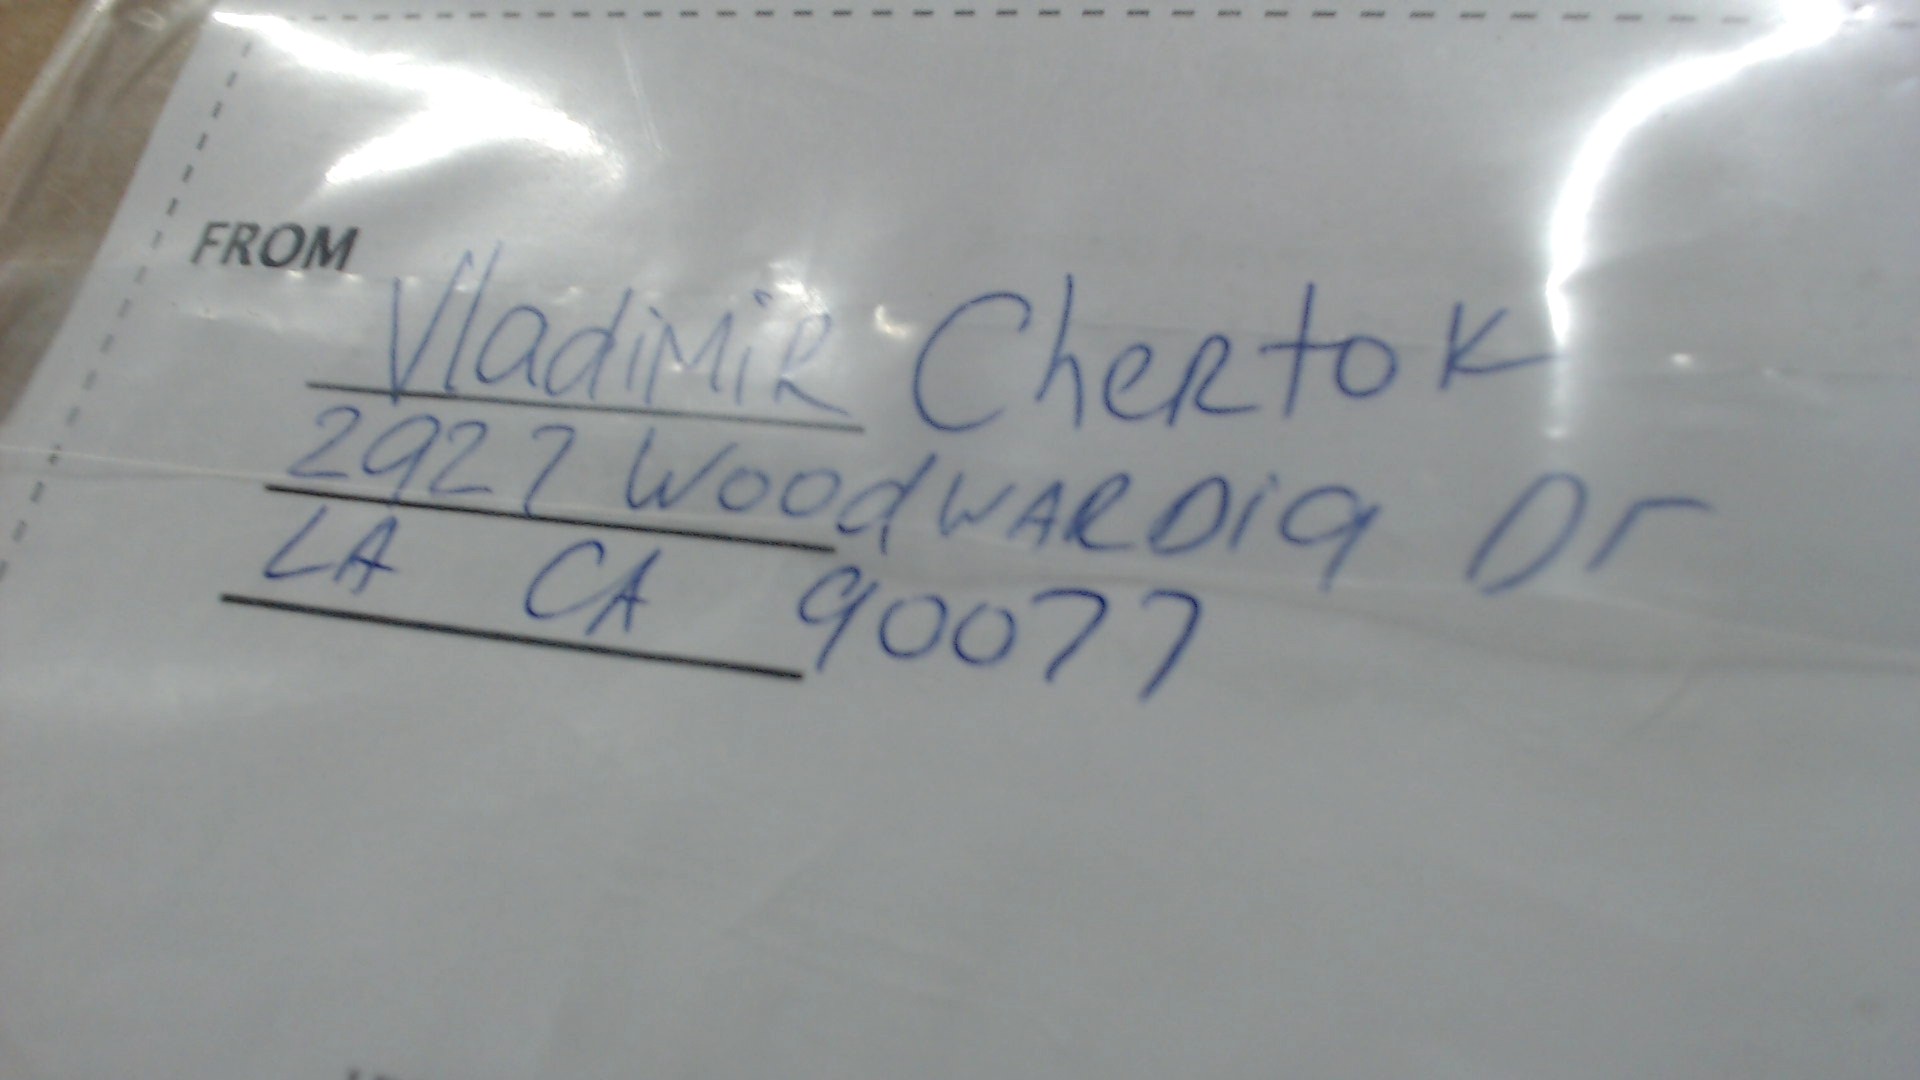 FROM
VladiMiR CheRtok
2927 WoodwARDia Dr
LA CA 90077